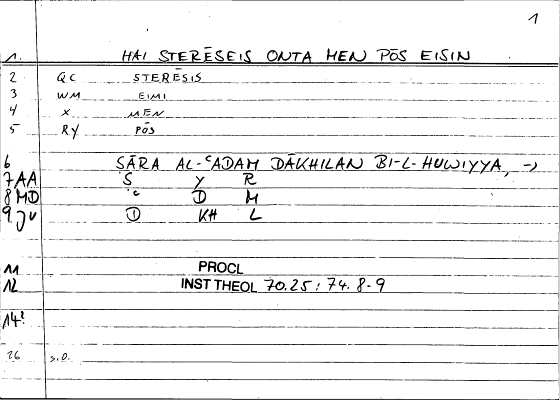 1
1. HAI STERĒSEIS ONTA MEN PŌS EISIN
2 QC STERĒSIS
3 WM EIMI
4 X MEN
5 RY PŌS
6 ṢĀRA AL-ᶜADAM DĀKHILAN BI-L-HUWIYYA, →
7 AA Ṣ Y R
8 MD ᶜ D M
9 JU D KH L
11 PROCL
12 INST THEOL 70.25 : 74.8-9
14?
26 s.o.